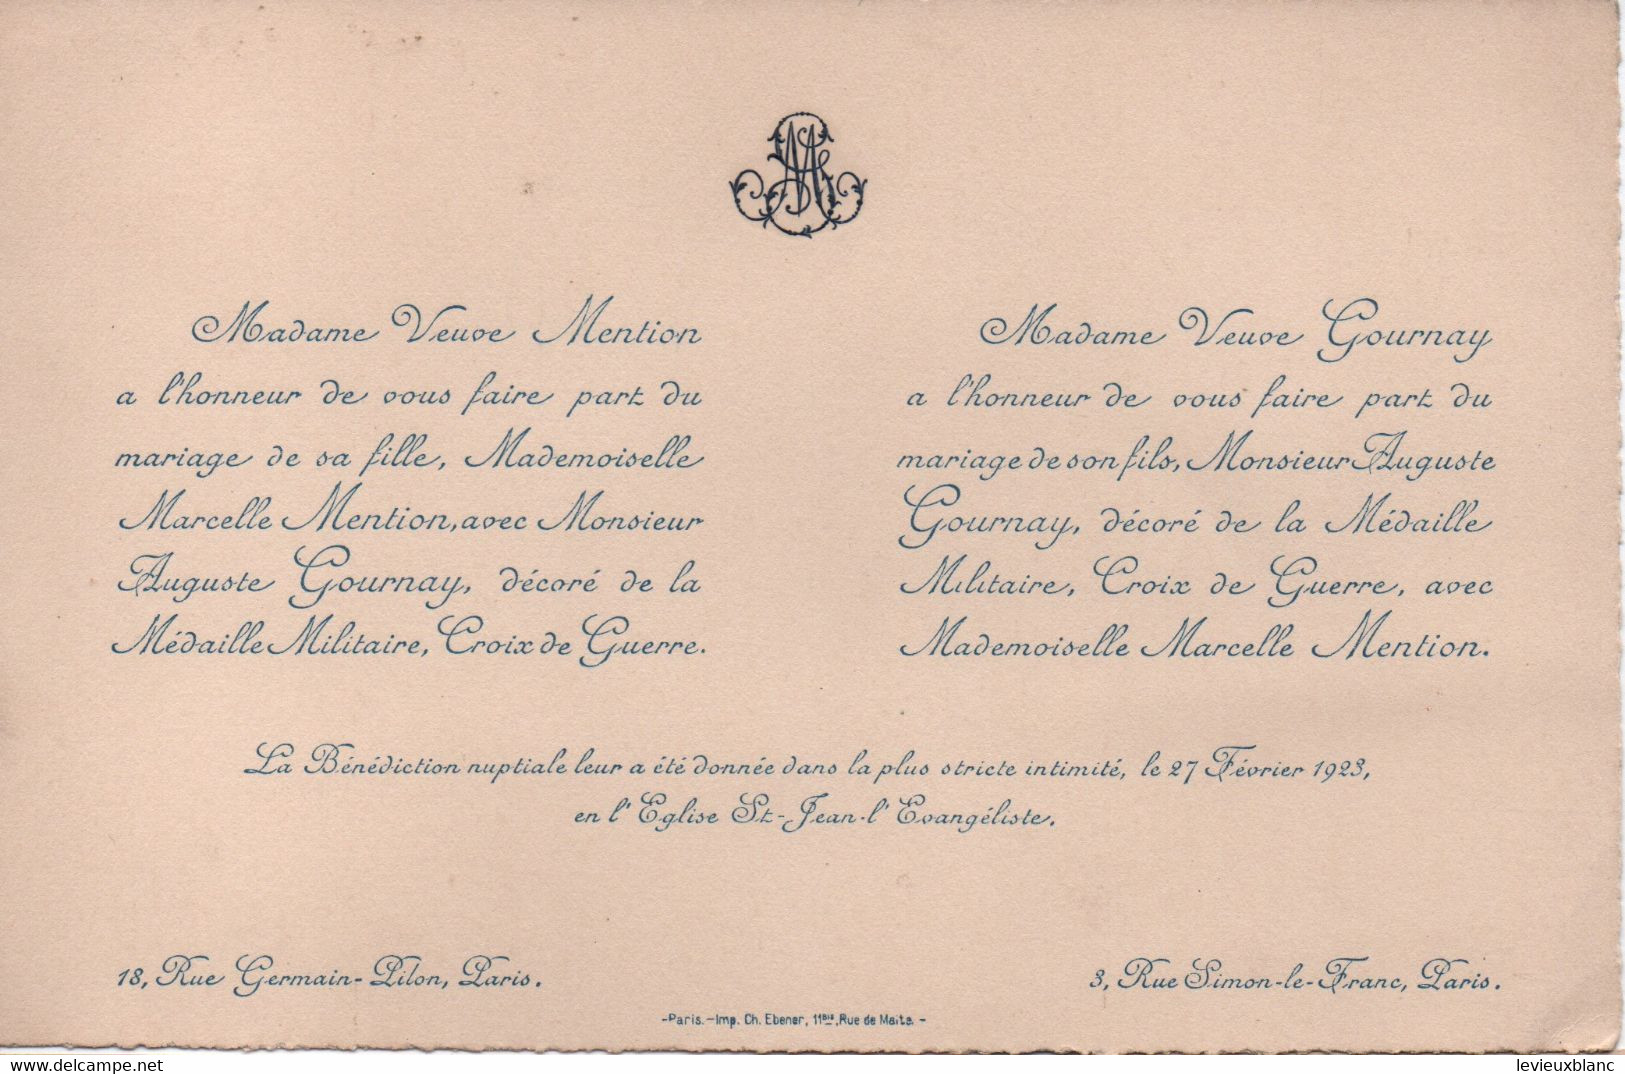 Madame Veuve Mention
a l'honneur de vous faire part du
mariage de sa fille, Mademoiselle
Marcelle Mention, avec Monsieur
Auguste Gournay, décoré de la
Médaille Militaire, Croix de Guerre.
Madame Veuve Gournay
a l'honneur de vous faire part du
mariage de son fils, Monsieur Auguste
Gournay, décoré de la Médaille
Militaire, Croix de Guerre, avec
Mademoiselle Marcelle Mention.
La Bénédiction nuptiale leur a été donnée dans la plus stricte intimité, le 27 Février 1923,
en l'Eglise St-Jean-l'Evangéliste.
18, Rue Germain-Pilon, Paris.
3, Rue Simon-le-Franc, Paris.
-Paris.-Imp. Ch. Ebener, 11Bis, Rue de Malte. -
www.delcampe.net
levieuxblanc